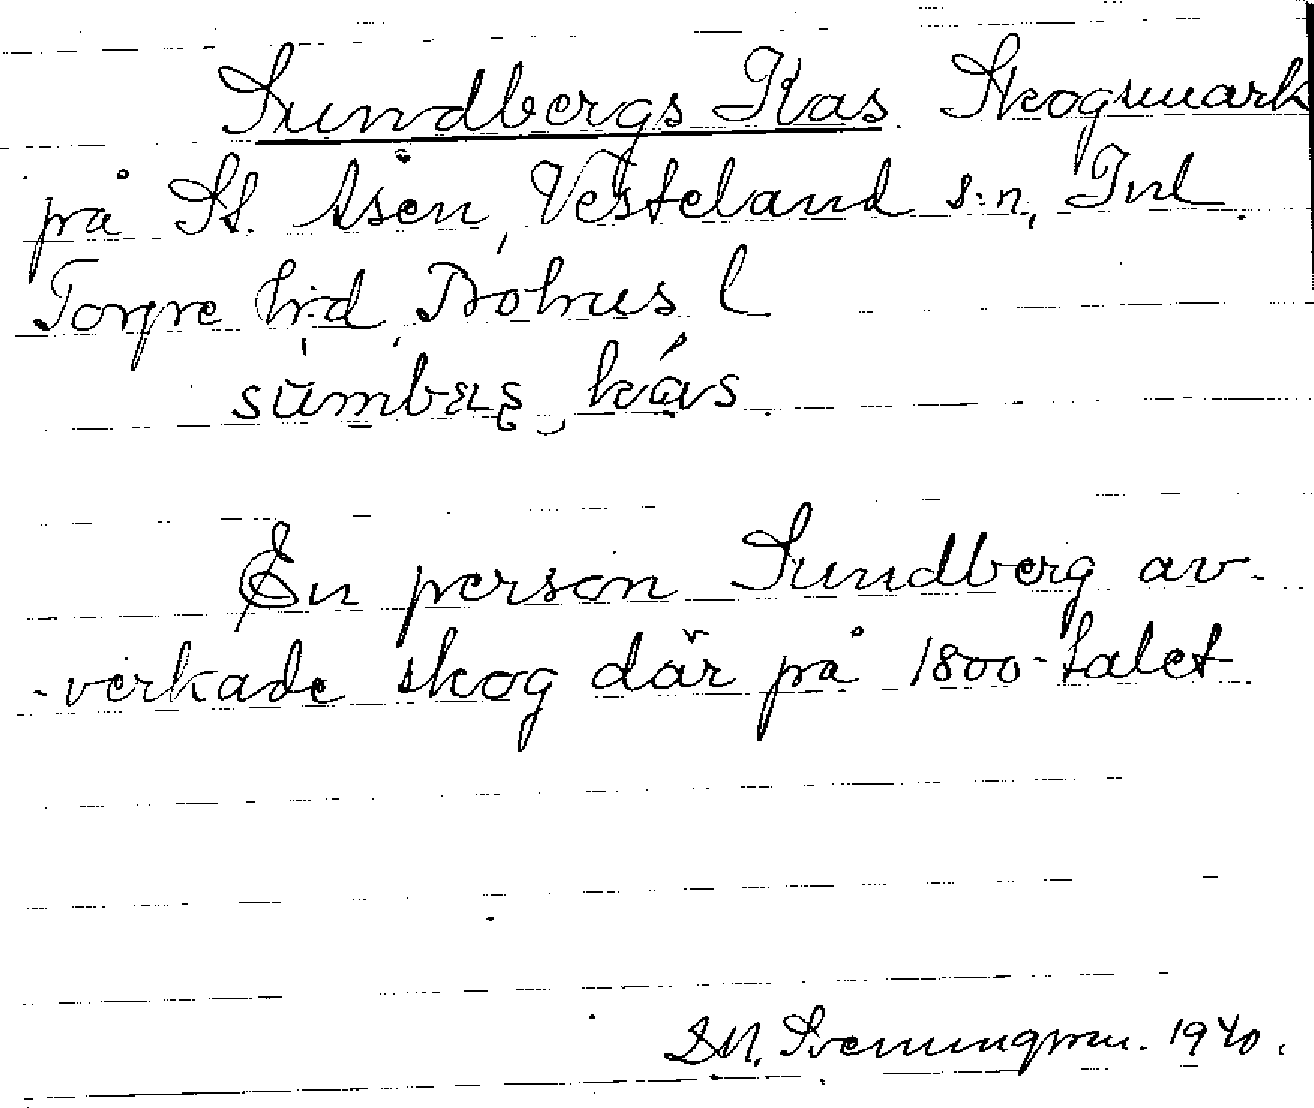 Sundbergs Kas. Skogsmark
på St. Åsen, Västeland s:n, Inl.
Torpe h:d, Bohus l
En person Sundberg av-
-verkade skog där på 1800-talet
Sveningsson. 1940.